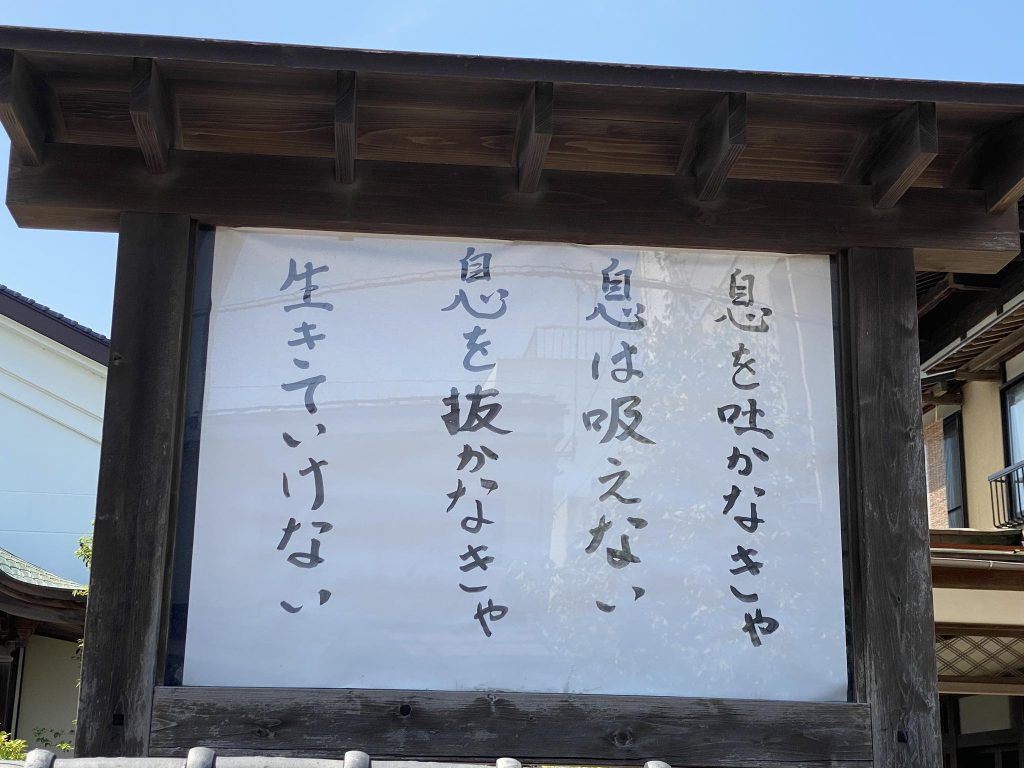 息を吐かなきゃ
息は吸えない
息を抜かなきゃ
生きていけない